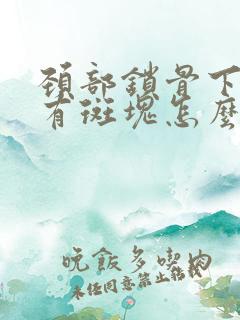 颈部鎖骨下
有斑塊怎麼
晚飯多喫肉
未经同意禁止转载